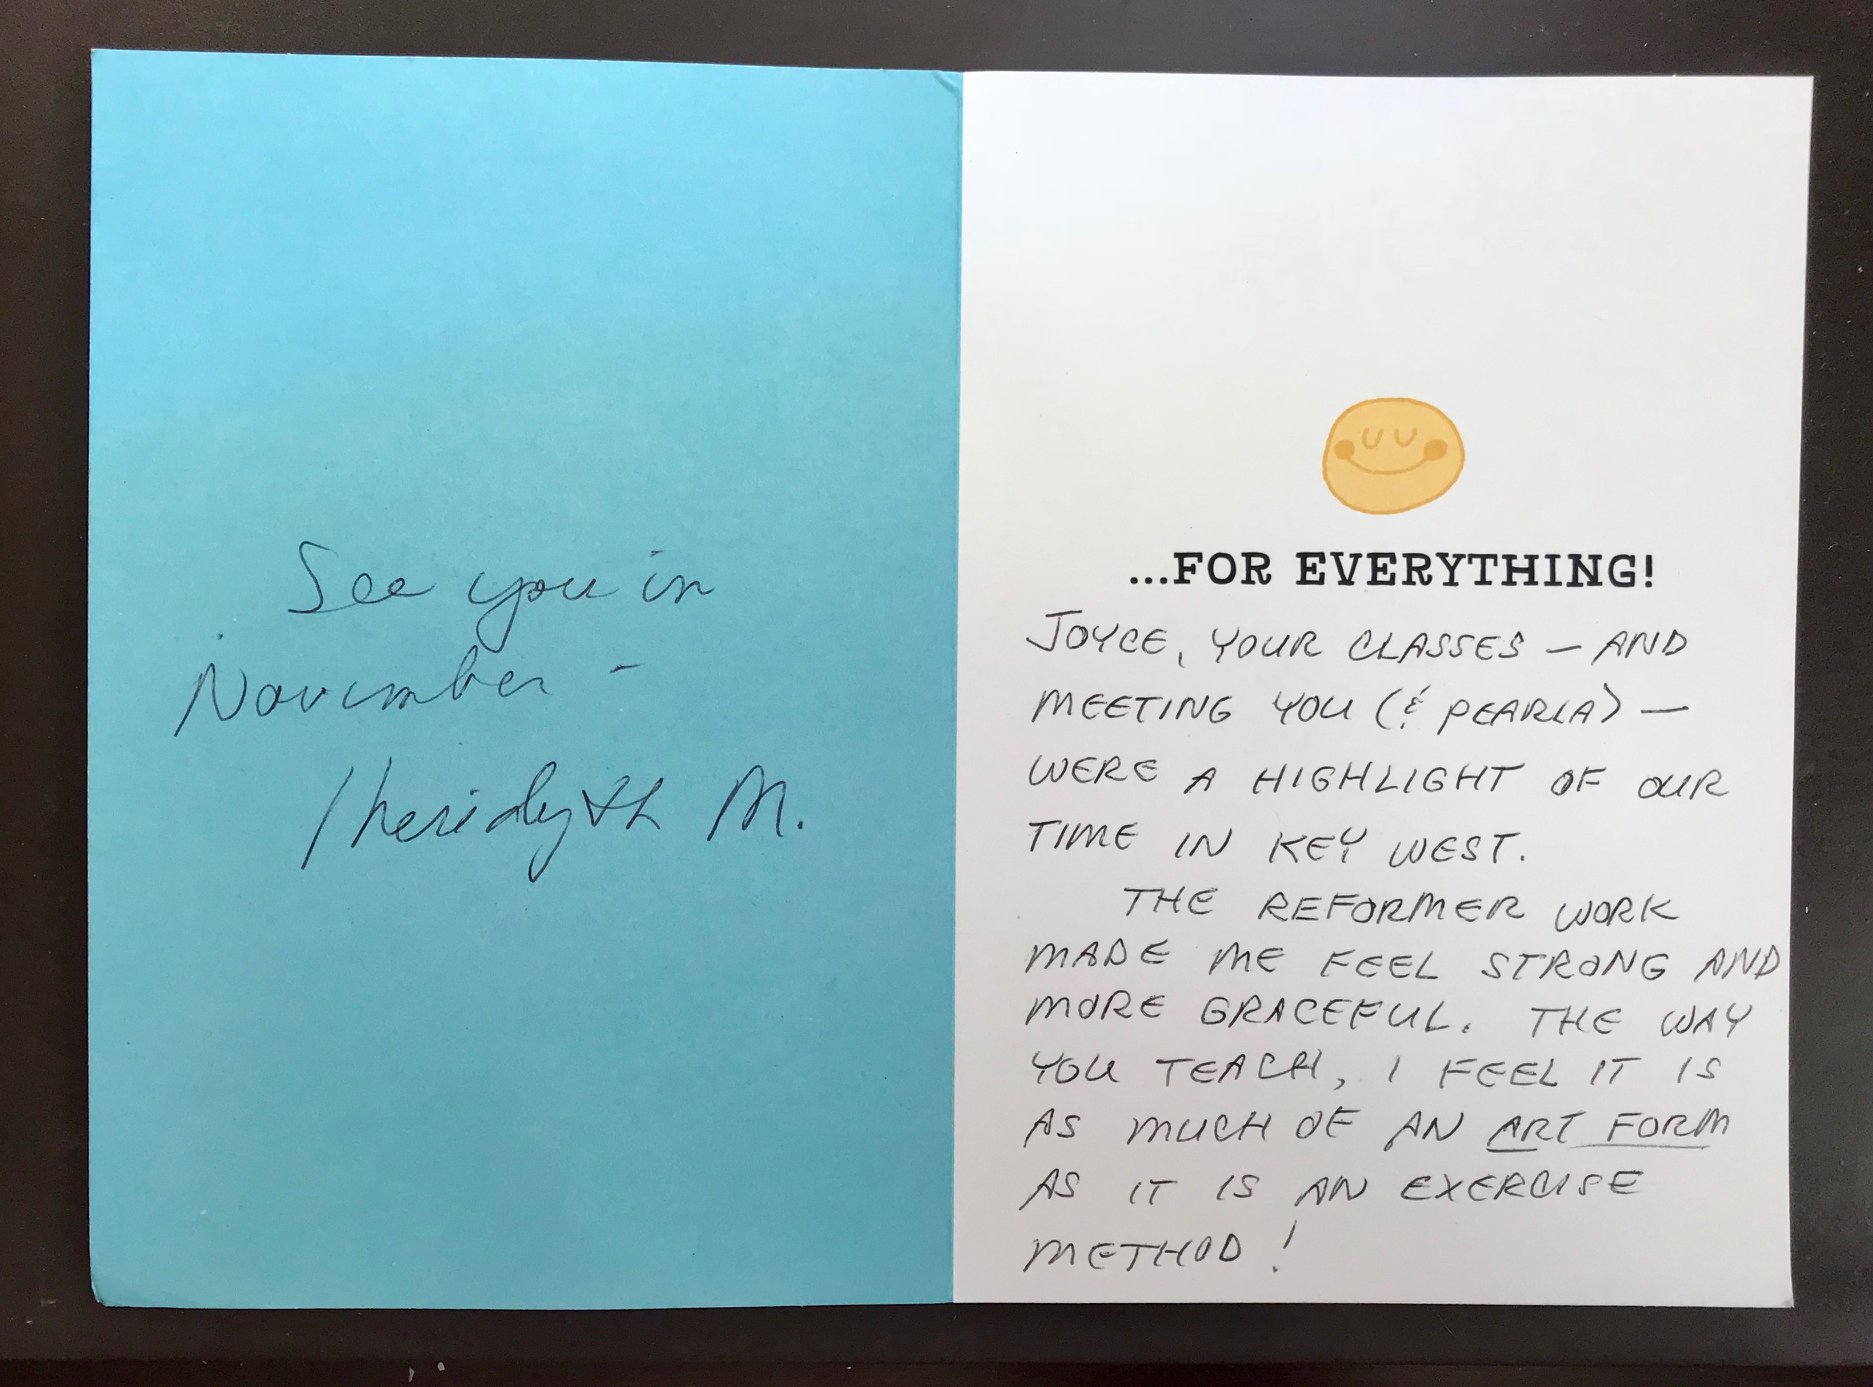 See you in
November -
M.
...FOR EVERYTHING!
JOYCE, YOUR CLASSES — AND
MEETING YOU (& PEARLA) —
WERE A HIGHLIGHT OF OUR
TIME IN KEY WEST.
THE REFORMER WORK
MADE ME FEEL STRONG AND
MORE GRACEFUL. THE WAY
YOU TEACH, I FEEL IT IS
AS MUCH OF AN ART FORM
AS IT IS AN EXERCISE
METHOD!